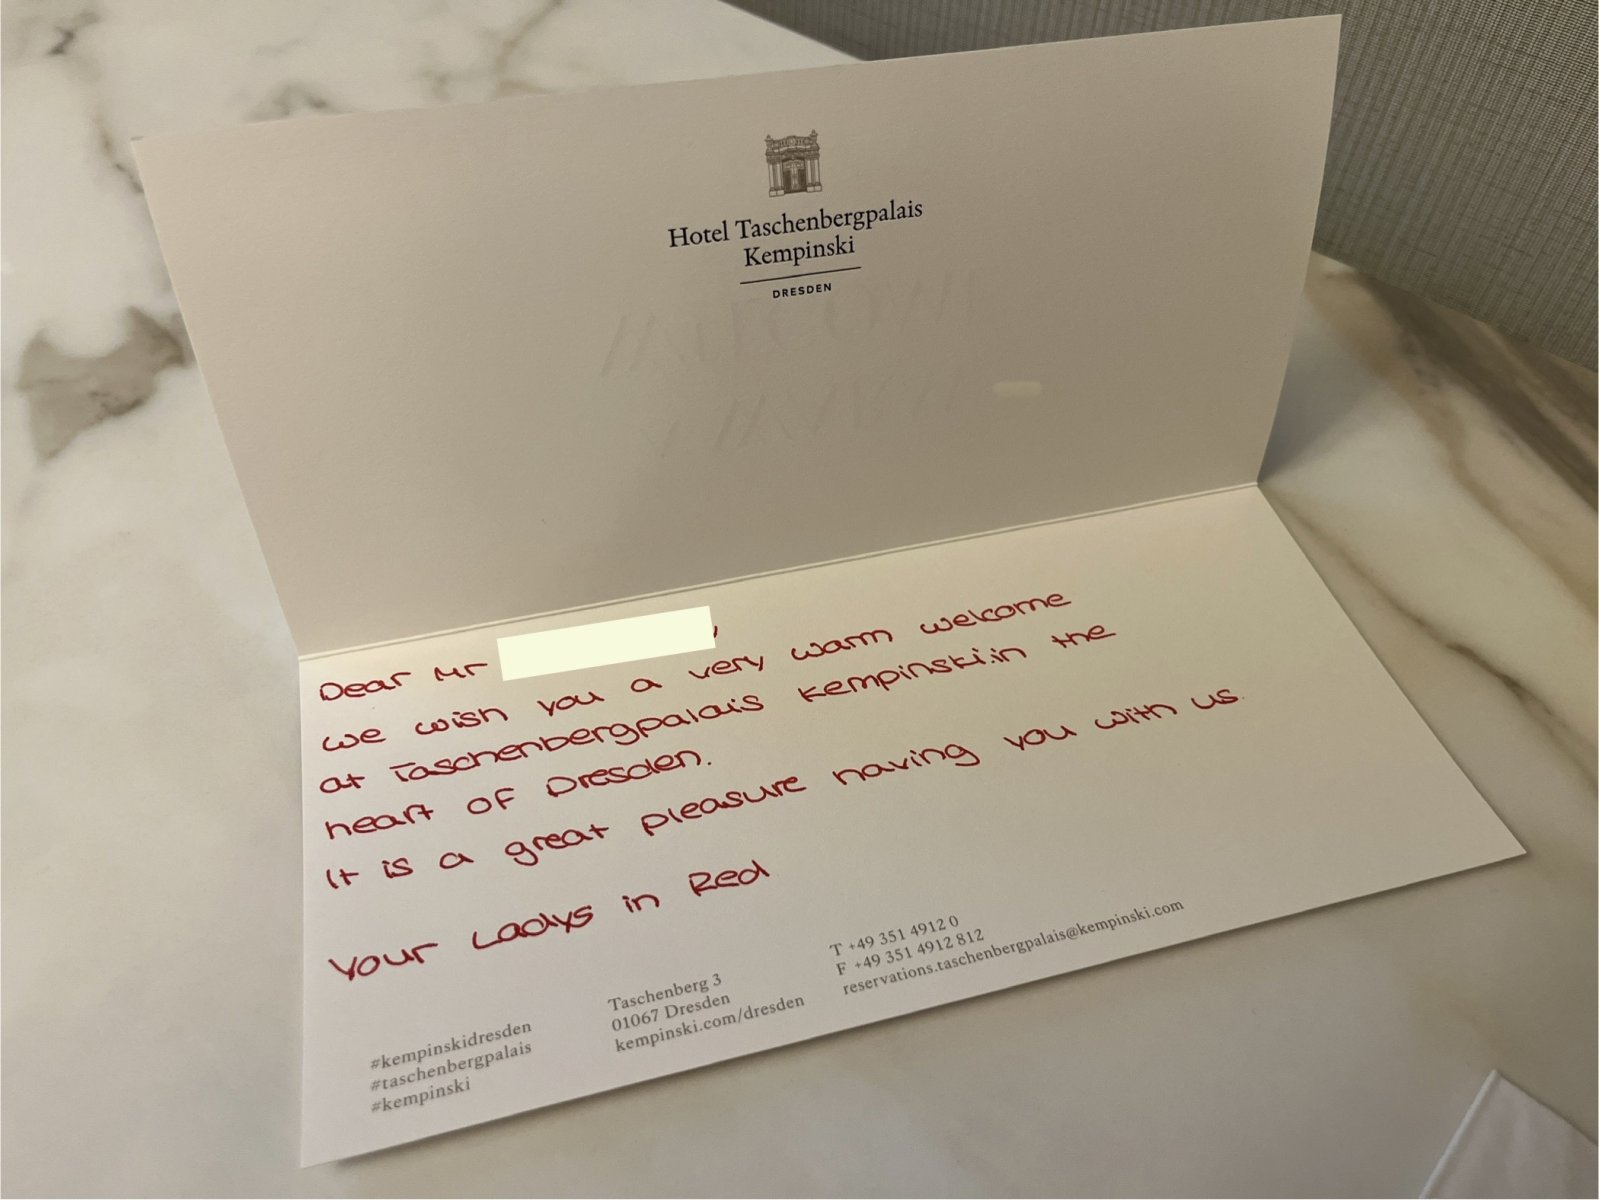 Hotel Taschenbergpalais
Kempinski
DRESDEN
Dear Mr ,
we wish you a very warm welcome
at Taschenbergpalais Kempinski.in the
heart of Dresden.
It is a great pleasure having you with us.
Your Ladys in Red
#kempinskidresden
#taschenbergpalais
#kempinski
Taschenberg 3
01067 Dresden
kempinski.com/dresden
T +49 351 4912 0
F +49 351 4912 812
reservations.taschenbergpalais@kempinski.com